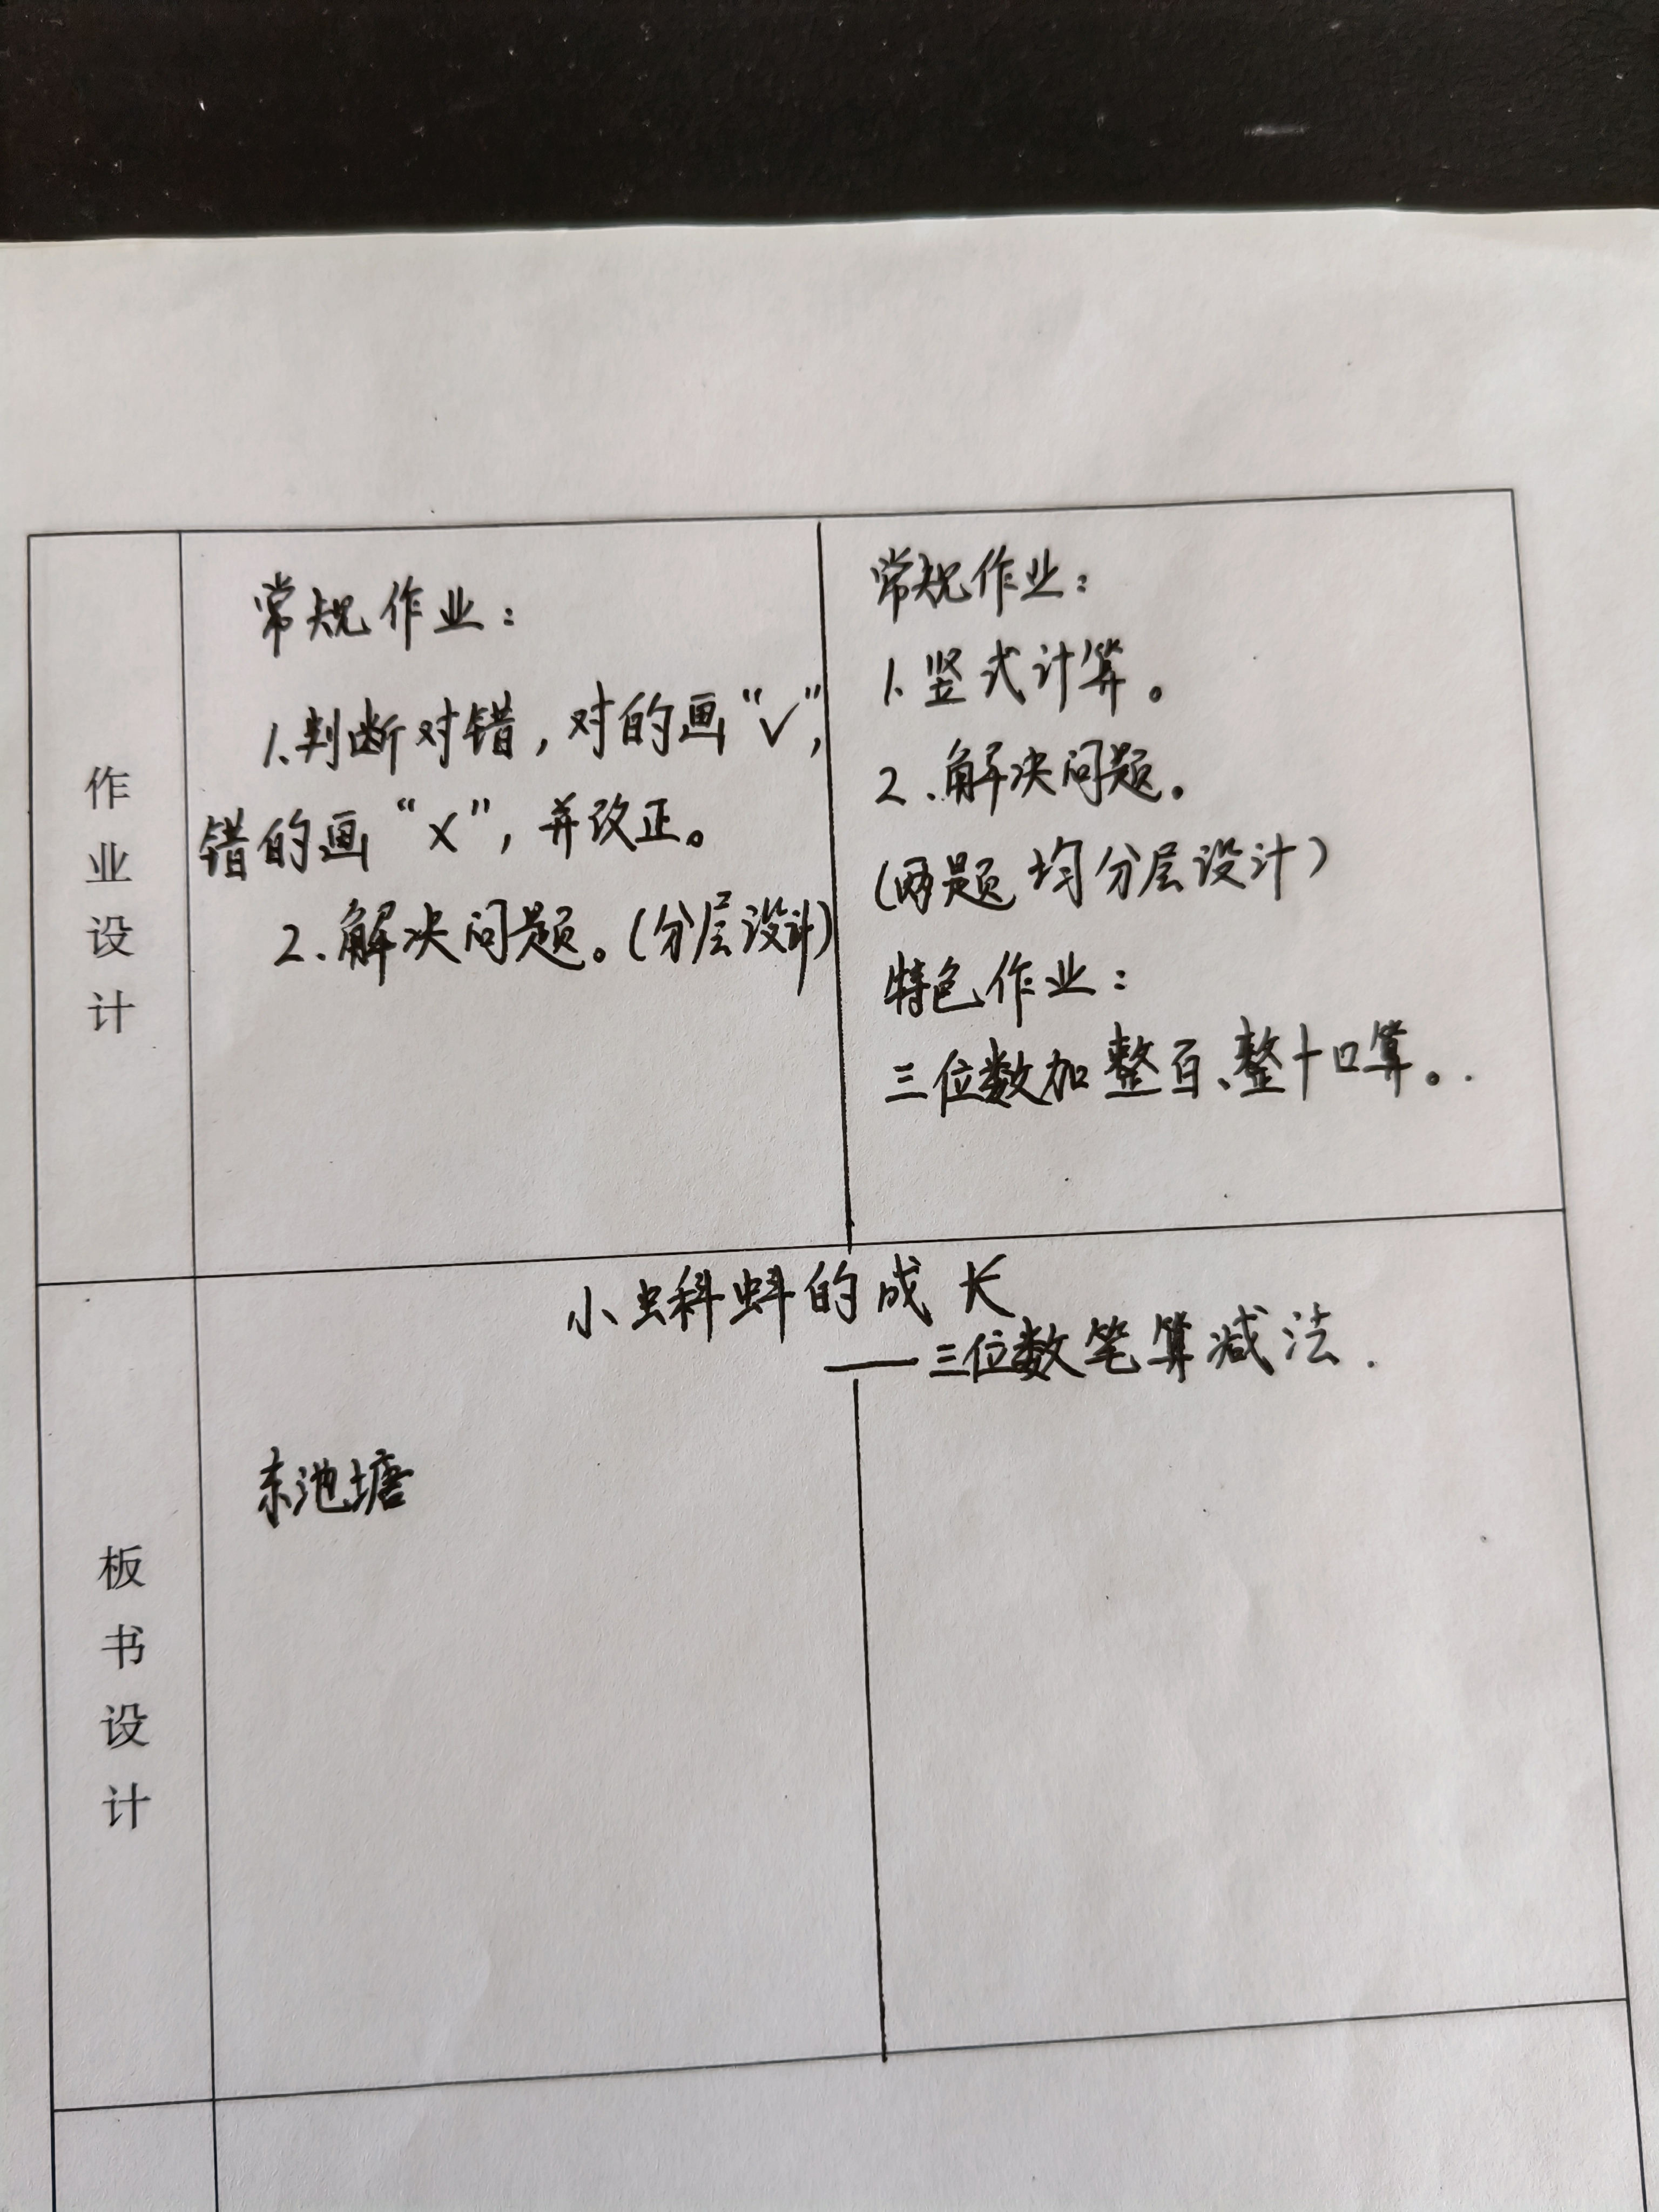 作业设计
常规作业：
1.判断对错，对的画“√”，
错的画“×”，并改正。
2.解决问题。(分层设计)
常规作业：
1.竖式计算。
2.解决问题。
(两题均分层设计)
特色作业：
三位数加整百、整十口算。
板书设计
小蝌蚪的成长
——三位数笔算减法.
东池塘